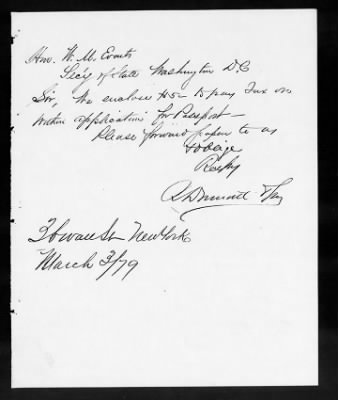 Hon. W. M. Evarts
Sec'y of State Washington D.C
Sir, We enclose $5— to pay Tax on
within application for Passport—
Please forward paper to us
& oblige
Resp'y
New York
March 3/79